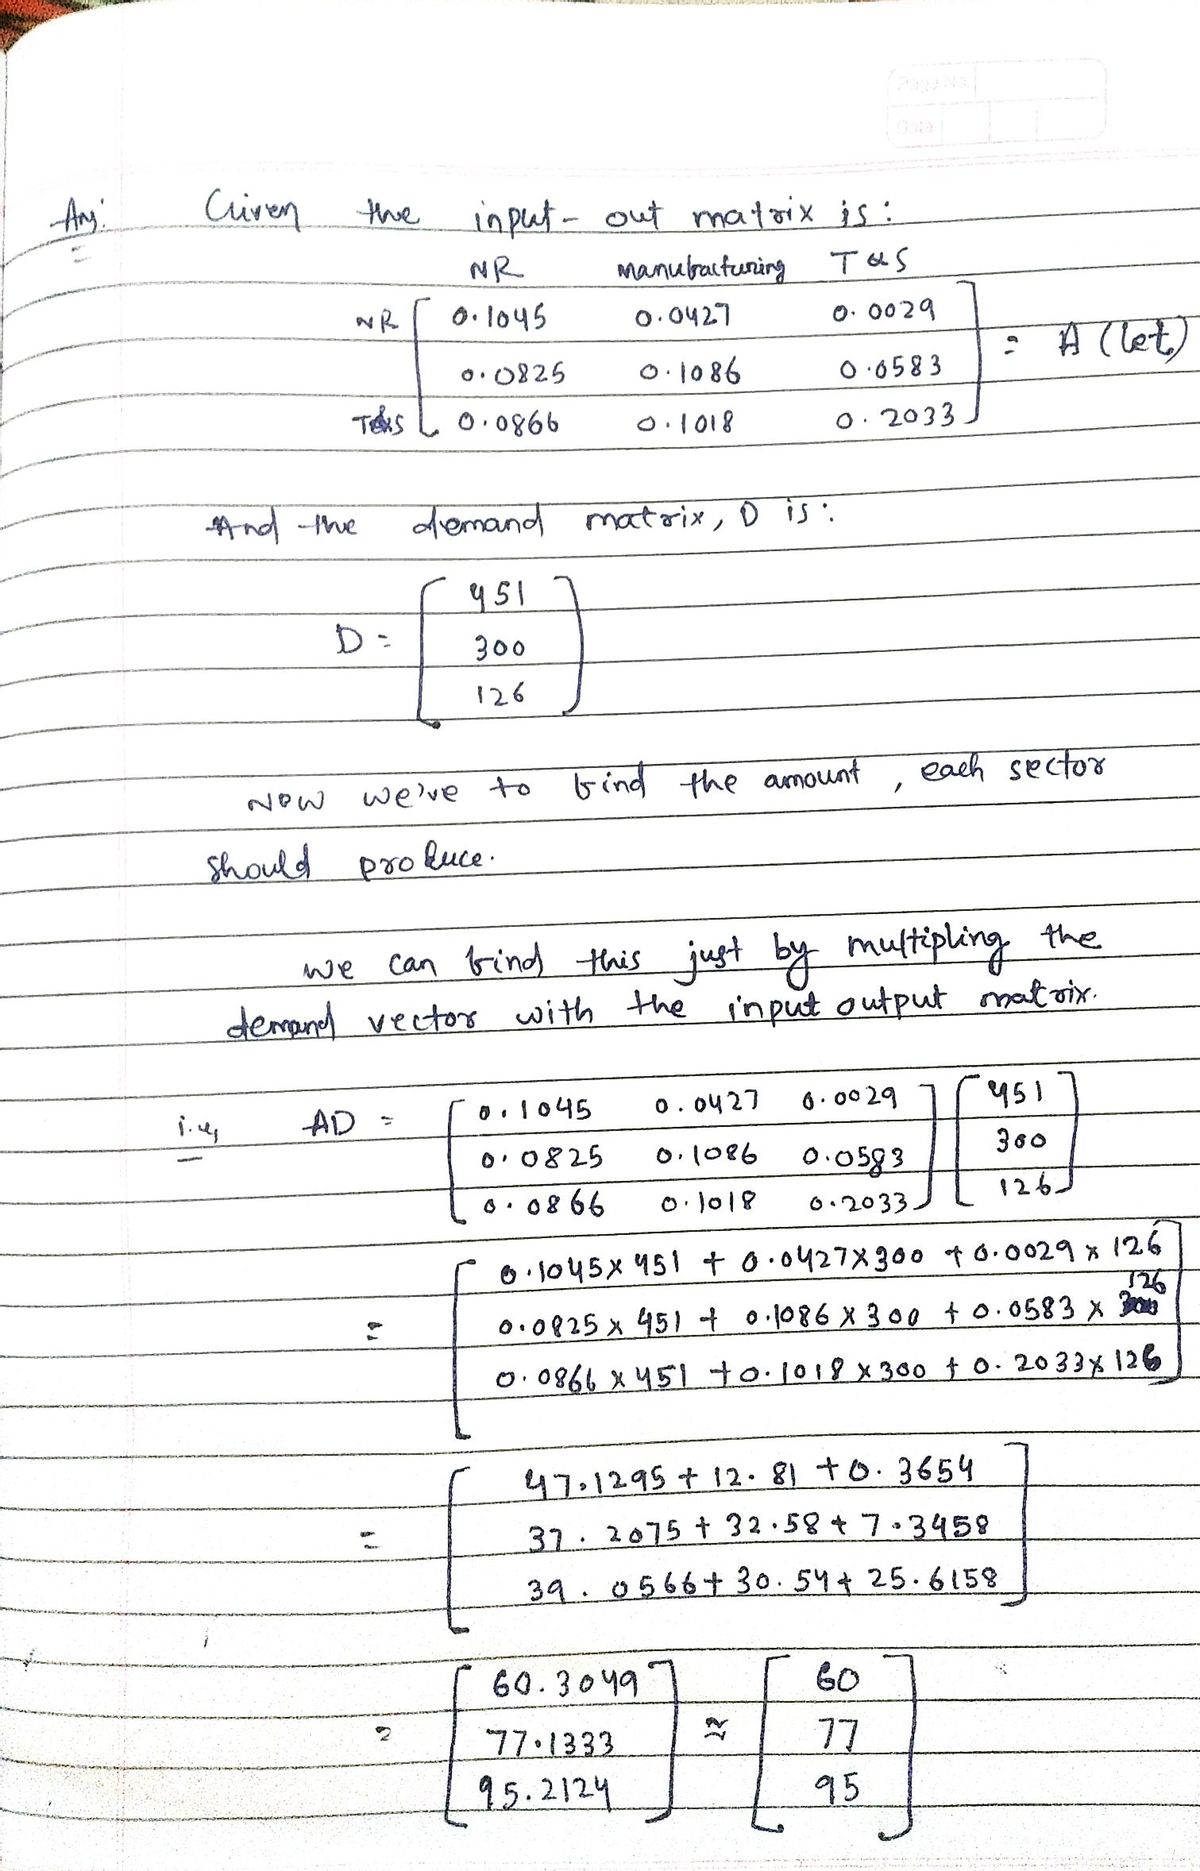 Page No.
Date
Ans: Given the input- out matrix is:
NR manufacturing T&S
NR [ 0.1045 0.0427 0.0029 ]
[ 0.0825 0.1086 0.0583 ] = A (let)
T&S [ 0.0866 0.1018 0.2033 ]
And the demand matrix, D is:
[ 451 ]
D = [ 300 ]
[ 126 ]
Now we've to find the amount , each sector
should produce.
we can find this just by multipling the
demand vector with the input output matrix.
i.e, AD = [ 0.1045 0.0427 0.0029 ] [ 451 ]
[ 0.0825 0.1086 0.0583 ] [ 300 ]
[ 0.0866 0.1018 0.2033 ] [ 126 ]
[ 0.1045 x 451 + 0.0427 x 300 + 0.0029 x 126 ]
= [ 0.0825 x 451 + 0.1086 x 300 + 0.0583 x 126 ]
[ 0.0866 x 451 + 0.1018 x 300 + 0.2033 x 126 ]
[ 47.1295 + 12.81 + 0.3654 ]
= [ 37.2075 + 32.58 + 7.3458 ]
[ 39.0566 + 30.54 + 25.6158 ]
[ 60.3049 ] [ 60 ]
= [ 77.1333 ] ≈ [ 77 ]
[ 95.2124 ] [ 95 ]